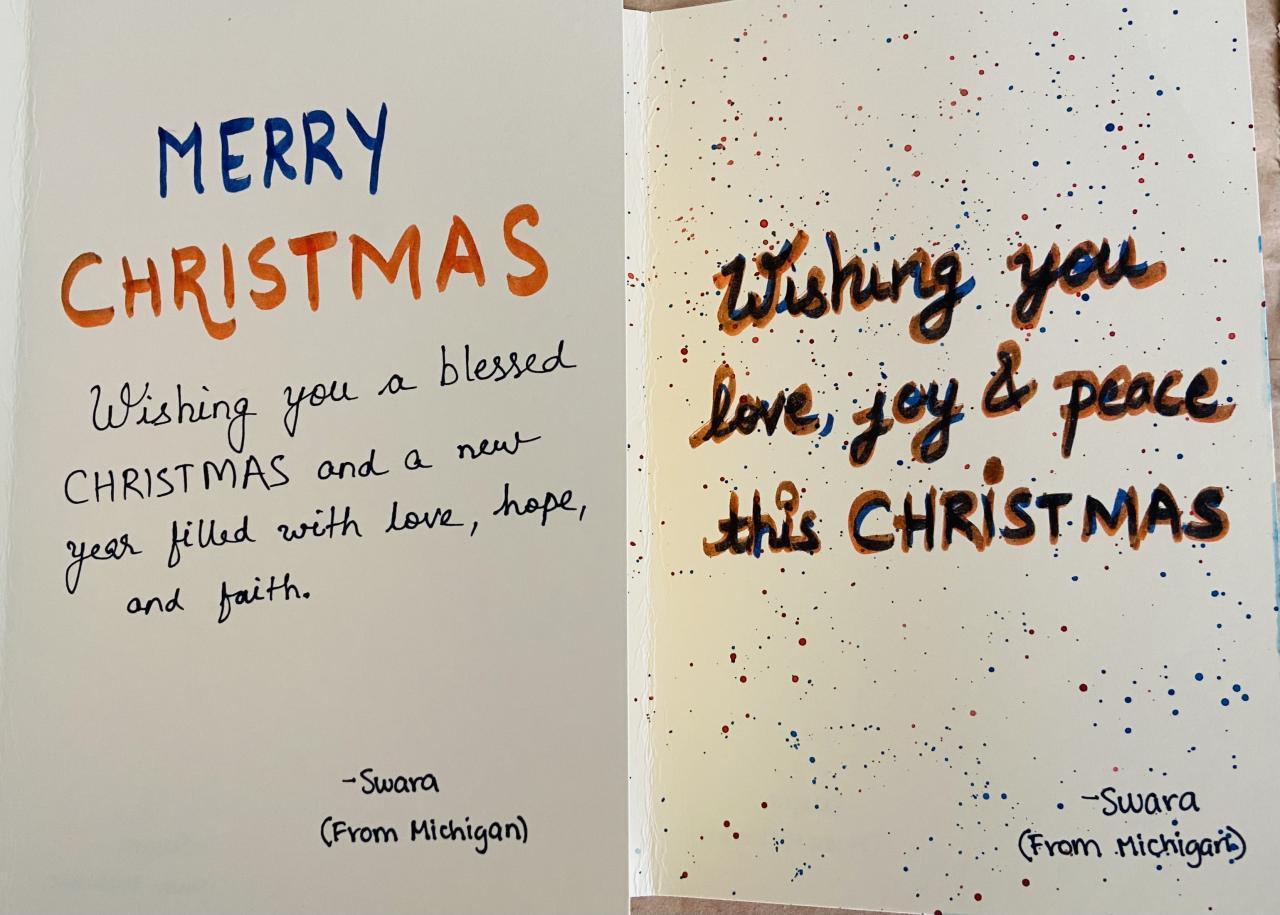 MERRY
CHRISTMAS
Wishing you a blessed
CHRISTMAS and a new
year filled with love, hope,
and faith.
-Swara
(From Michigan)
Wishing you
love, joy & peace
this CHRiSTMAS
-Swara
(From Michigan)